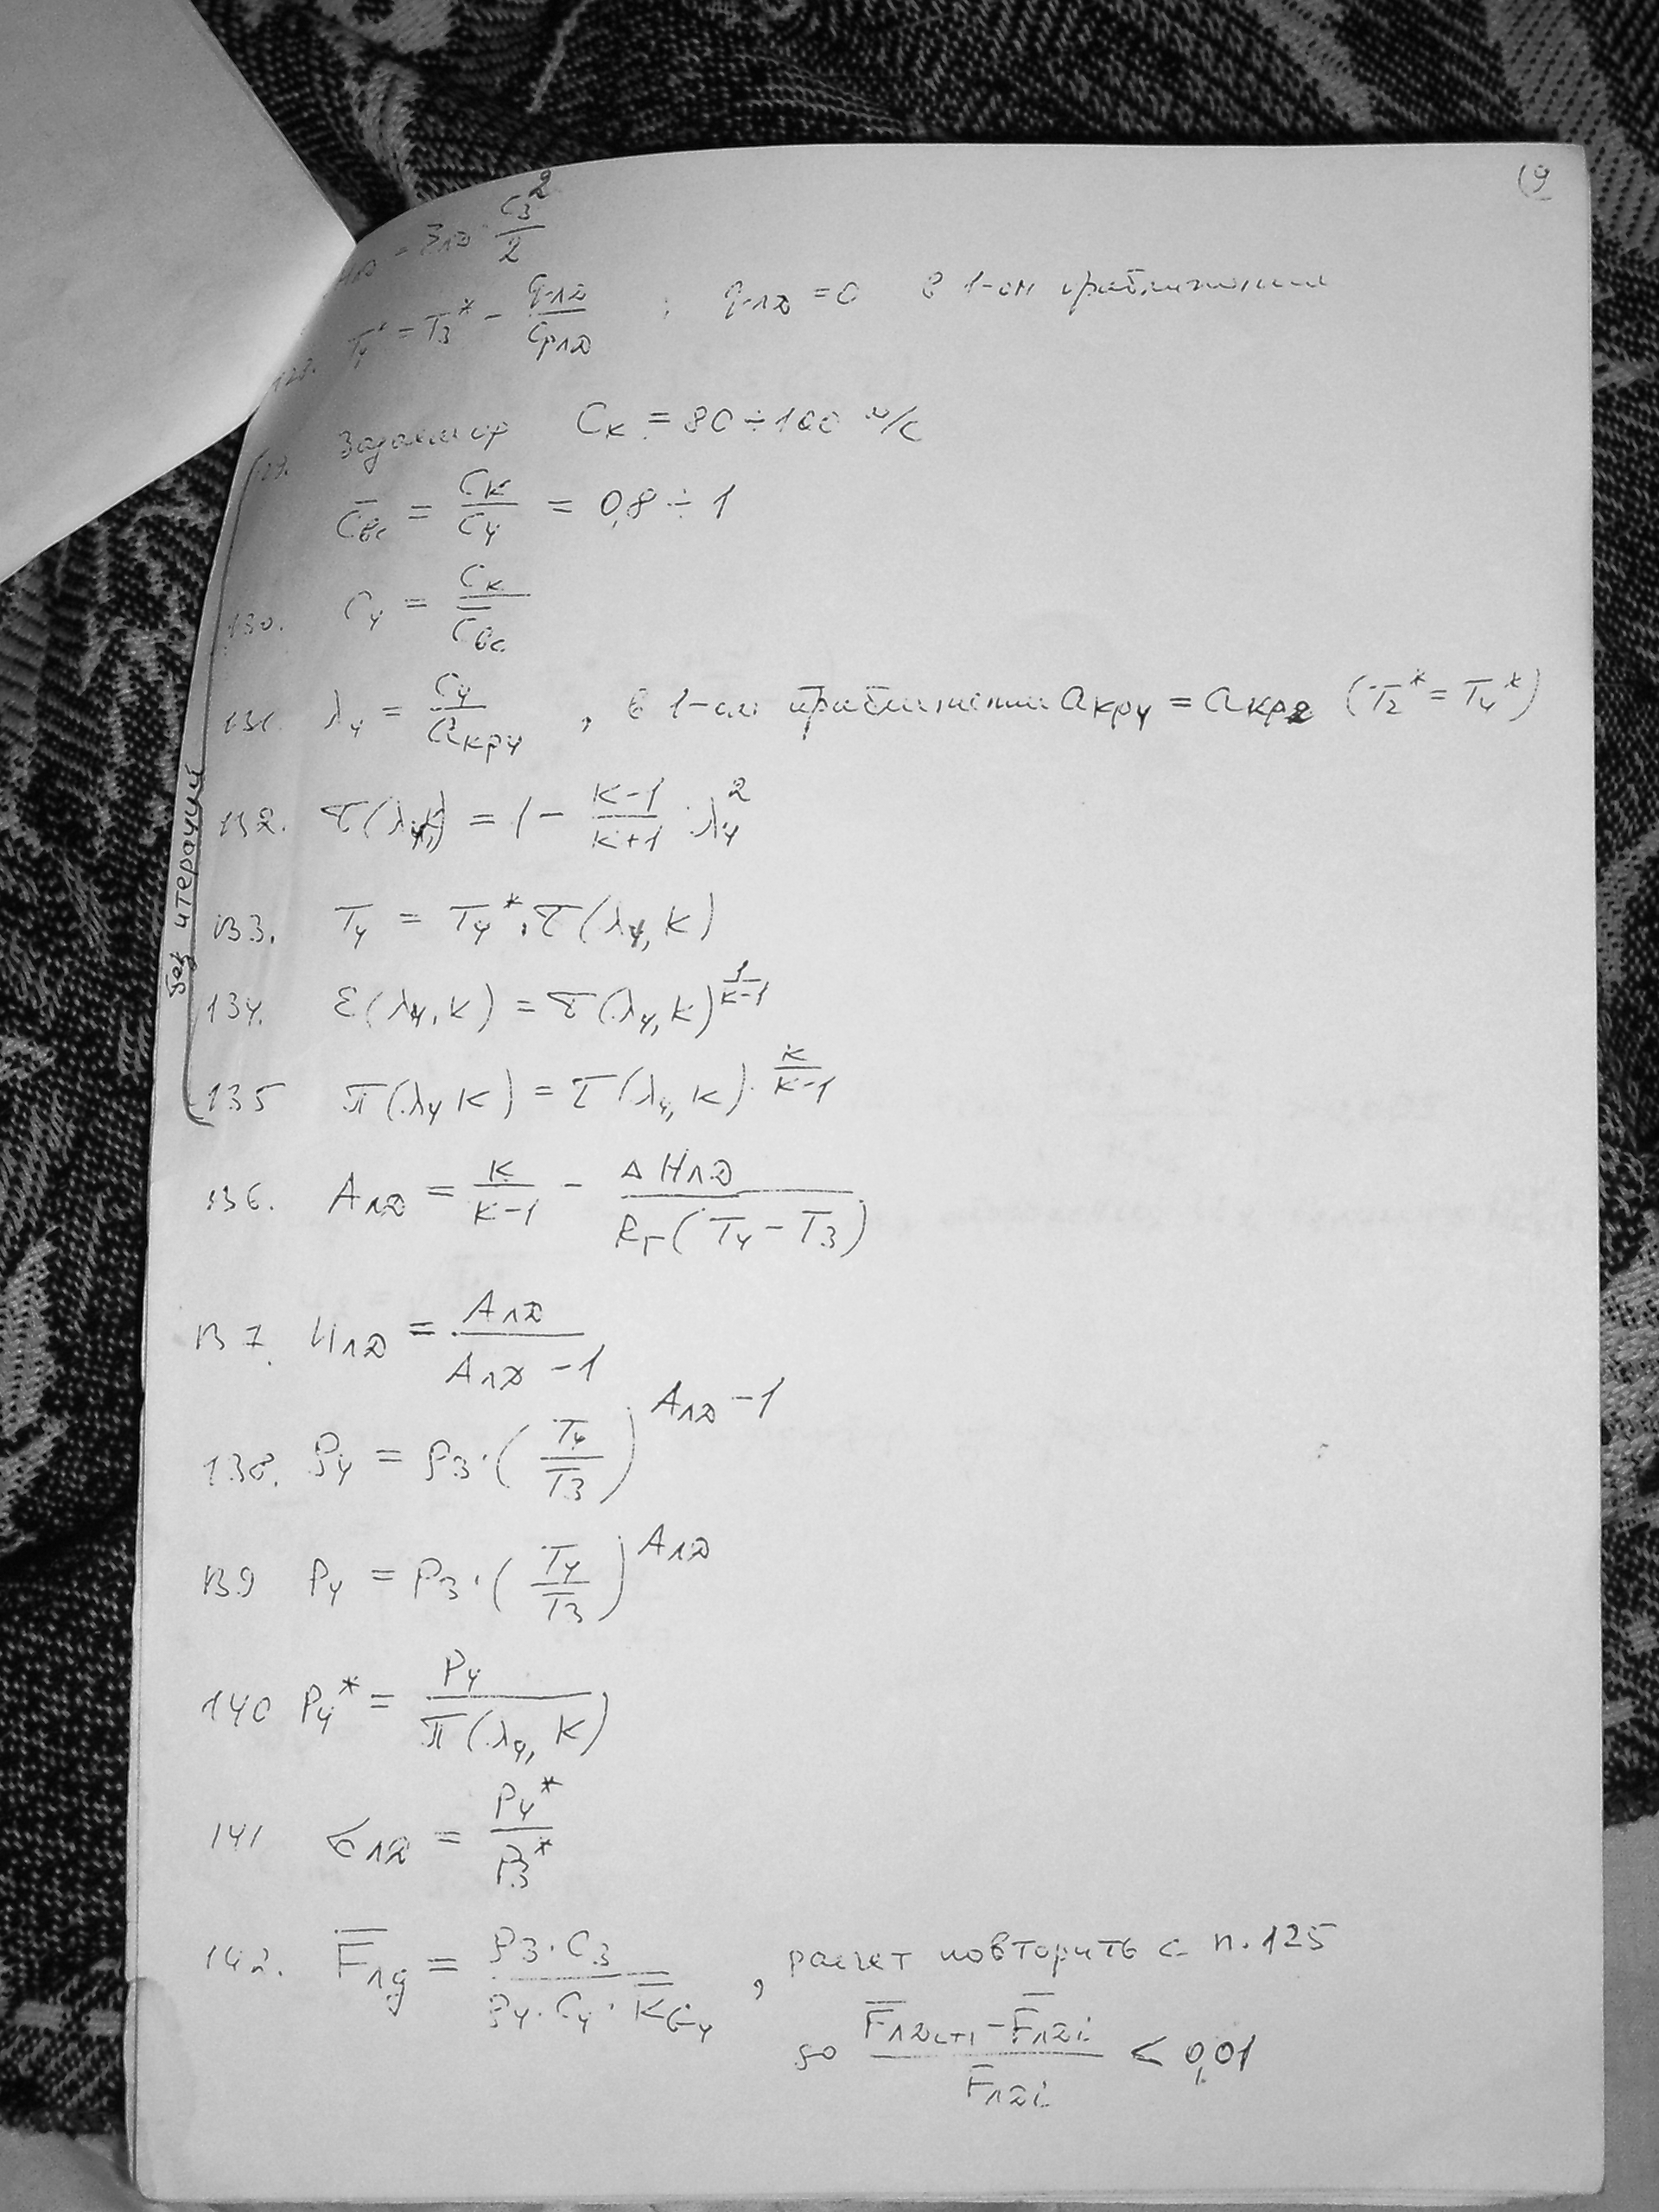 (9
= ξлд · C3²/2
128. T4* = T3* − qлд/Cpлд ; qлд = 0 в 1-ом приближении
129. Задаемся Cк = 80÷100 м/с
C̅вс = Cк/C4 = 0,8 ÷ 1
130. C4 = Cк/C̅вс
131. λ4 = C4/aкр4 , в 1-ом приближении aкр4 = aкр2 (T2* = T4*)
132. τ(λ4,k) = 1 − (k−1)/(k+1) · λ4²
133. T4 = T4* · τ(λ4, k)
134. ε(λ4, k) = τ(λ4, k)^(1/(k−1))
135 π(λ4 k) = τ(λ4, k)^(k/(k−1))
без итераций
136. Aлд = k/(k−1) − ΔHлд/(Rг(T4 − T3))
137. nлд = Aлд/(Aлд − 1)
138. ρ4 = ρ3 · (T4/T3)^(Aлд − 1)
139 P4 = P3 · (T4/T3)^Aлд
140 P4* = P4/π(λ4, k)
141 σлд = P4*/P3*
142. F̅лд = ρ3 · C3/(ρ4 · C4 · K̅G4) , расчет повторить с п. 125
до (F̅лдi+1 − F̅лдi)/F̅лдi < 0,01